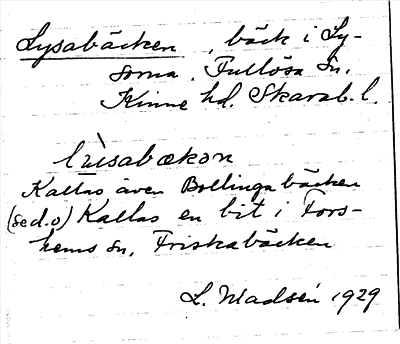 Lysabäcken, bäck i Ly-
sorna, Fullösa Sn.
Kinne hd. Skarab. l.
lysabækɷn
Kallas även Bollinga bäcken
(se d. o) Kallas en bit i Fors-
hems sn, Friskabäcken
L. Madsén 1929